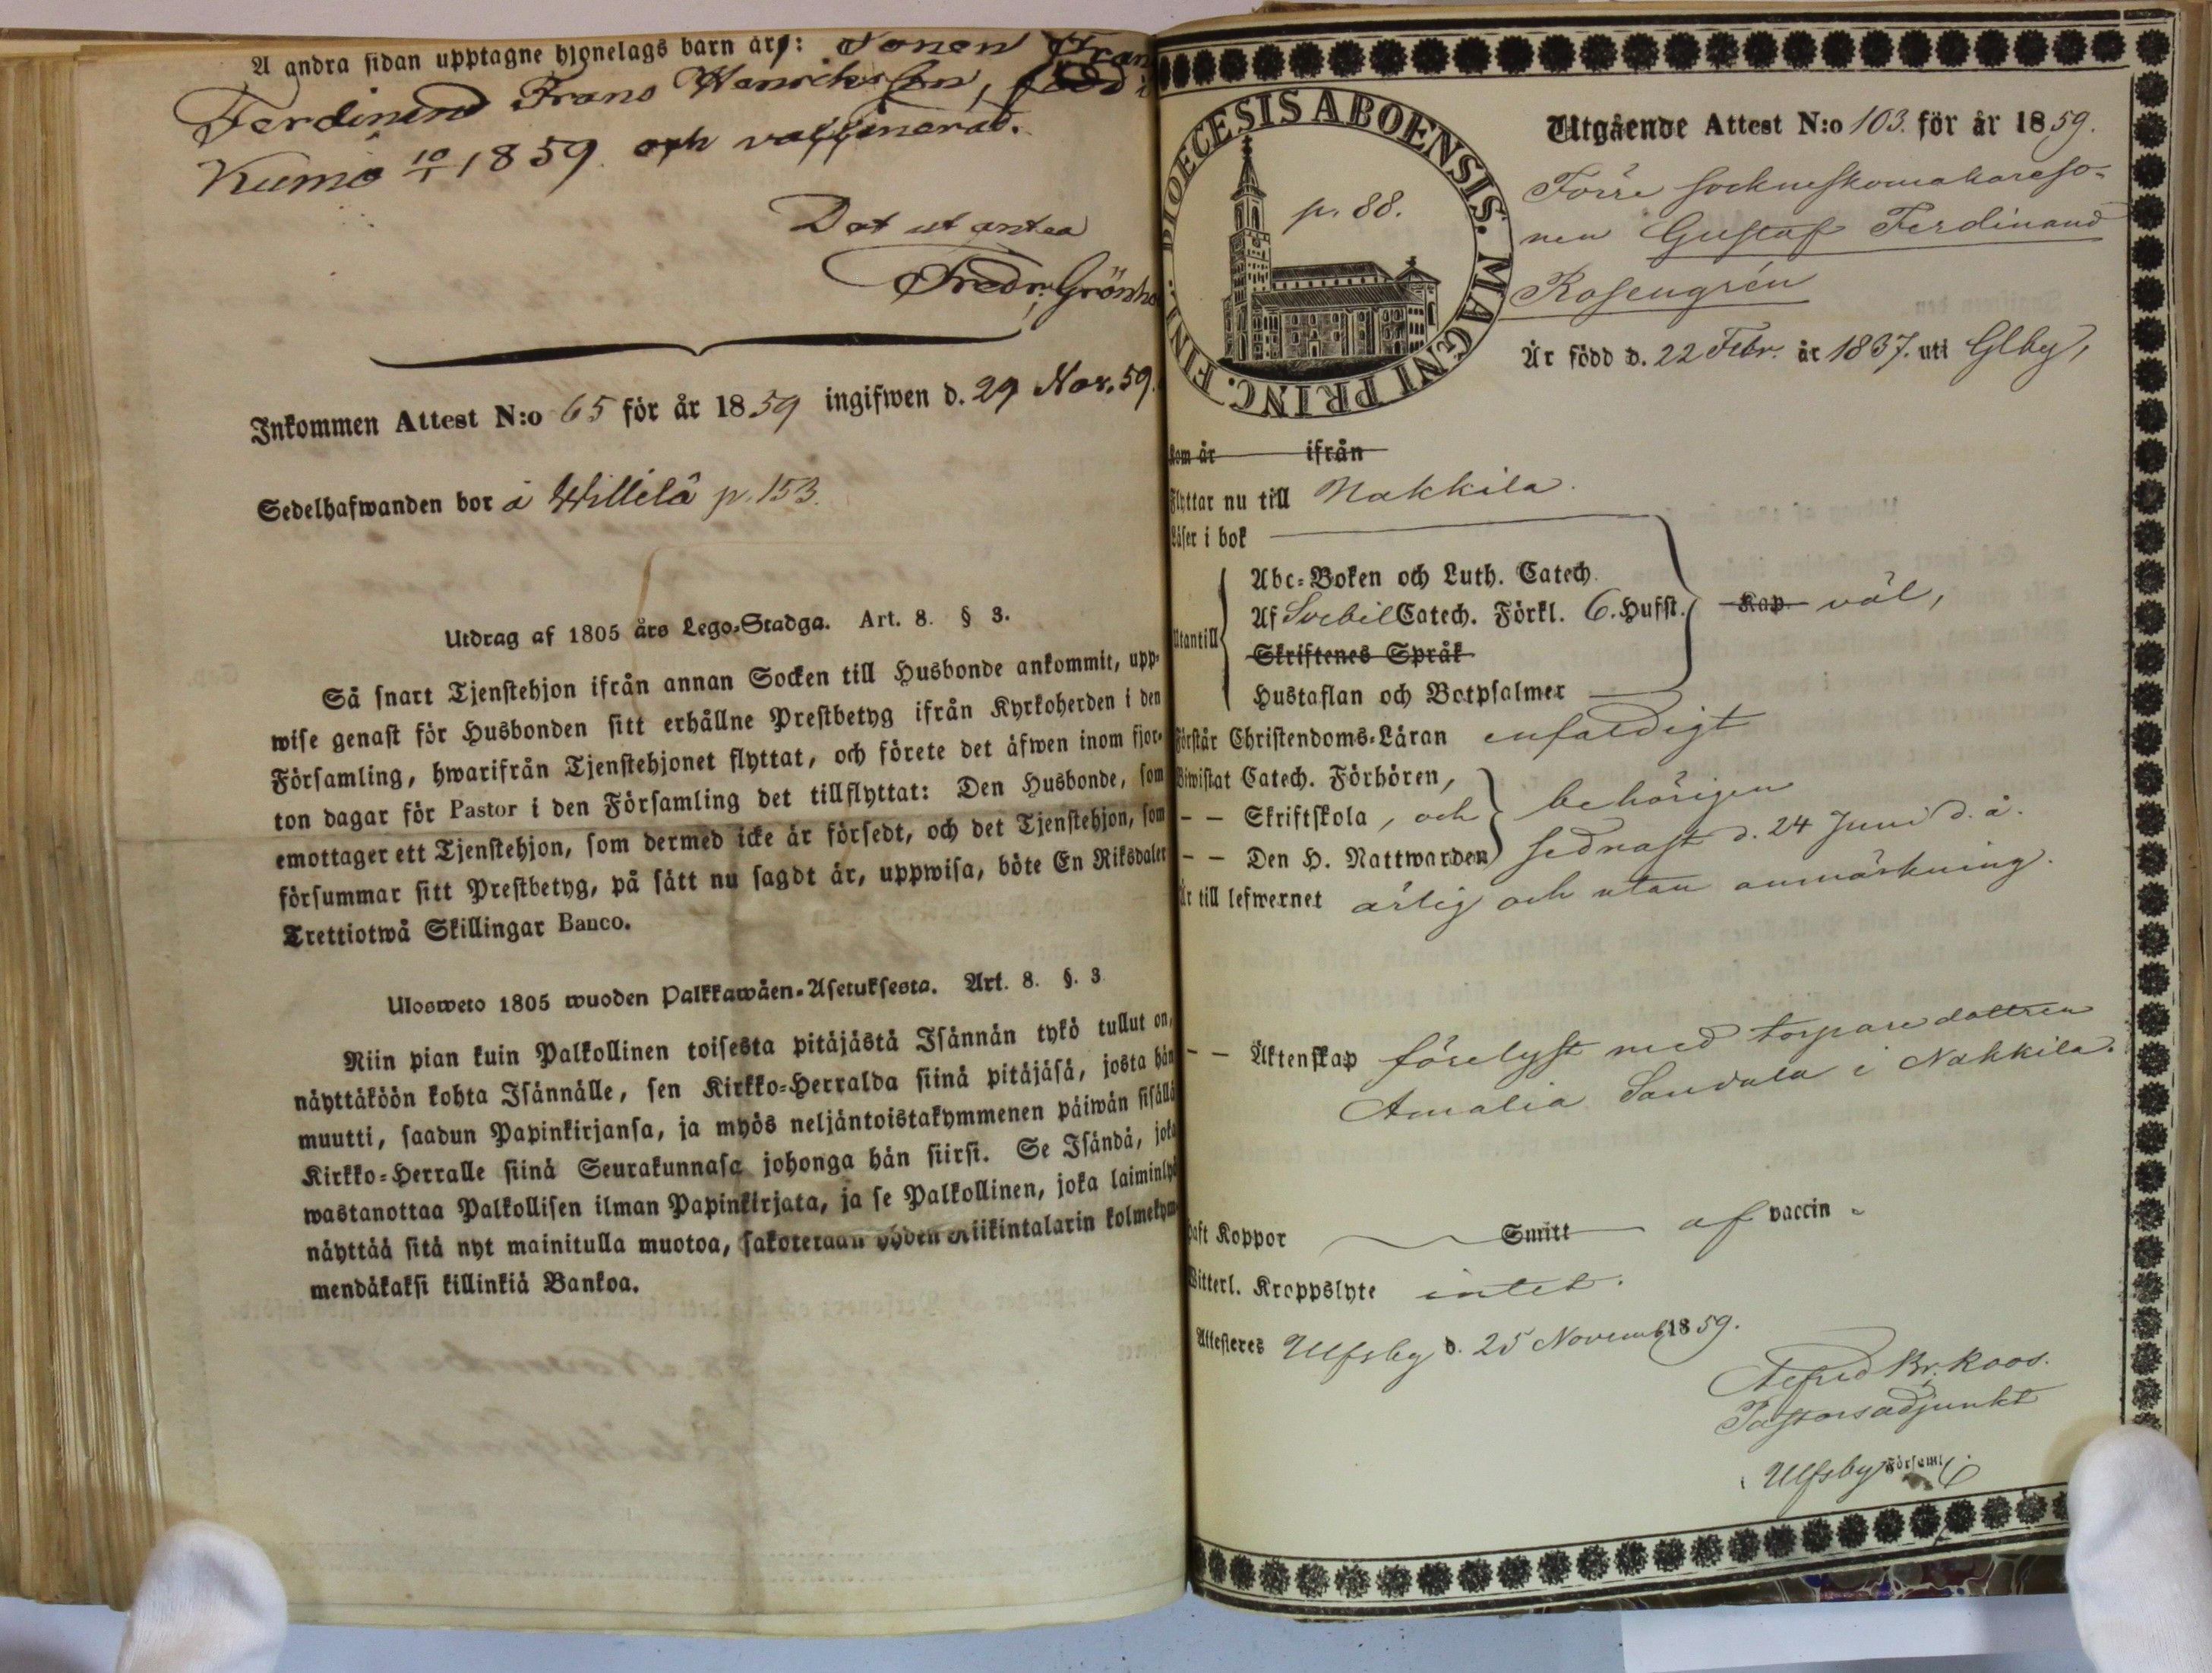 A andra sidan upptagne hjonelags barn äro: Sonen Fran
Ferdinend Frans Henriksson, född i
Kumo 10/1 1859 och vaccinerad.
Dat ut antea
Fredr. Grönho
Inkommen Attest N:o 65 för år 1859 ingifwen d. 29 Nov. 59.
Sedelhafwanden bor å Willilä p. 153.
Utdrag af 1805 års Lego-Stadga. Art. 8. § 3.
Så snart Tjenstehjon ifrån annan Socken till Husbonde ankommit, upp-
wise genast för Husbonden sitt erhållne Prestbetyg ifrån Kyrkoherden i den
Församling, hwarifrån Tjenstehjonet flyttat, och förete det äfwen inom fjor-
ton dagar för Pastor i den Församling det tillflyttat: Den Husbonde, som
emottager ett Tjenstehjon, som dermed icke är försedt, och det Tjenstehjon, som
försummar sitt Prestbetyg, på sätt nu sagdt är, uppwisa, böte En Riksdaler
Trettiotwå Skillingar Banco.
Ulosweto 1805 wuoden Palkkawäen-Asetuksesta. Art. 8. §. 3
Niin pian kuin Palkollinen toisesta pitäjästä Isännän tykö tullut on,
näyttäköön kohta Isännälle, sen Kirkko-Herralda siinä pitäjäsä, josta hän
muutti, saadun Papinkirjansa, ja myös neljäntoistakymmenen päiwän sisällä
Kirkko-Herralle siinä Seurakunnasa johonga hän siirsi. Se Isändä, joka
wastanottaa Palkollisen ilman Papinkirjata, ja se Palkollinen, joka laiminlyö
näyttää sitä nyt mainitulla muotoa, sakotetaan yhden Riikintalarin kolmekym-
mendäkaksi killinkiä Bankoa.
DIOECESIS ABOENSIS. MAGNI PRINC. FINL.
p. 88.
Utgående Attest N:o 103. för år 1859.
Förre sockneskomakareso-
nen Gustaf Ferdinand
Rosengrén
Är född d. 22 Febr. år 1837. uti Glby,
kom år ifrån
Flyttar nu till Nakkila.
Läser i bok
Utantill
Abc-Boken och Luth. Catech.
Af Svebil Catech. Förkl. 6. Hufst. Kap. väl,
Skriftenes Språk
Hustaflan och Botpsalmer
Förstår Christendoms-Läran enfaldigt
Biwistat Catech. Förhören,
– – Skriftskola, och behörigen
– – Den H. Nattwarden sednast d. 24 Juni d. å.
Är till lefwernet ärlig och utan anmärkning.
– – Äktenskap förelyst med torparedottren
Amalia Sandala i Nakkila.
Haft Koppor Smitt af vaccin
Witterl. Kroppslyte intet.
Attesteres Ulfsby d. 25 Novemb. 1859.
Alfred Br. Roos.
Pastorsadjunkt
i Ulfsby Församl.